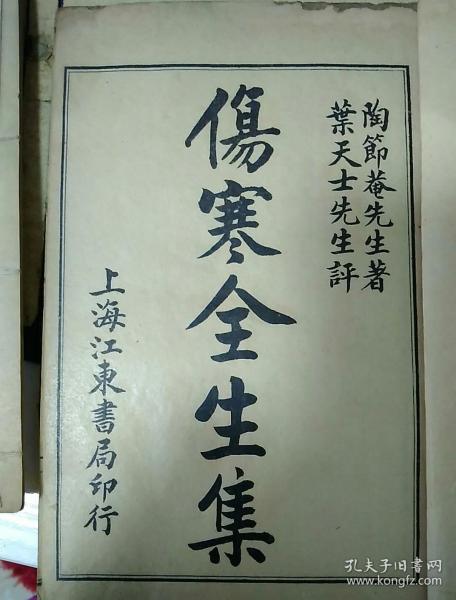 陶節菴先生著
葉天士先生評
傷寒全生集
上海江東書局印行
孔夫子旧書网
www.kongfz.com